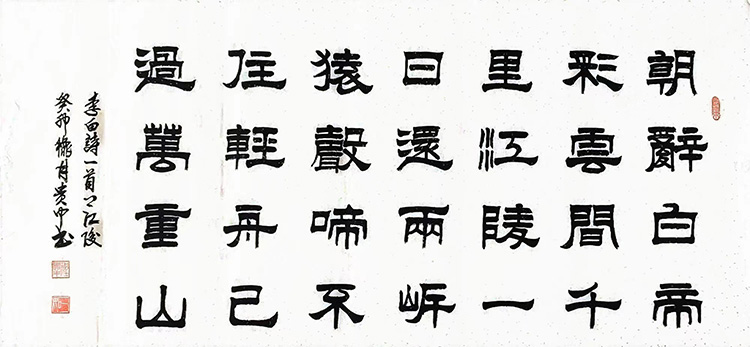 朝辭白帝
彩雲間千
里江陵一
日還兩岸
猿聲啼不
住輕舟已
過萬重山
李白詩一首江陵
癸卯月贵中书